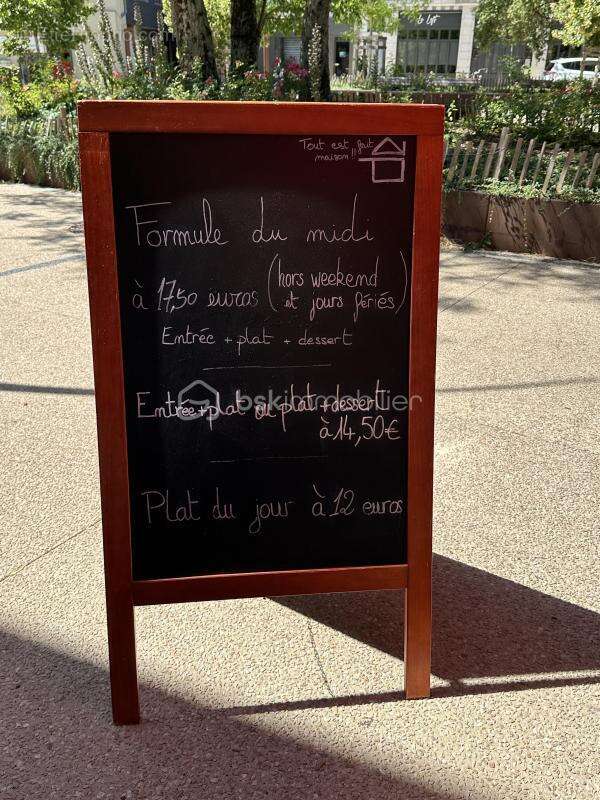 Tout est fait
maison !!
Formule du midi
à 17,50 euros (hors weekend
et jours fériés)
Entrée + plat + dessert
Entrée + plat ou plat + dessert
à 14,50€
bskimmobilier
Plat du jour à 12 euros